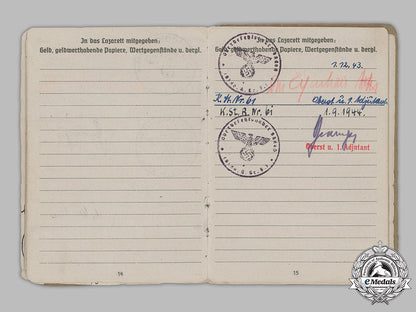 In das Lazarett mitgegeben:
Geld, geldwerthabende Papiere, Wertgegenstände u. dergl.
14
In das Lazarett mitgegeben:
Geld, geldwerthabende Papiere, Wertgegenstände u. dergl.
1.12.43.
K.St.Nr. 61
Oberst u. 1. Adjutant
K.St.R. Nr. 61
1.9.1944.
Oberst u. 1. Adjutant
15
eMedals